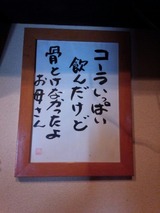 コーラいっぱい
飲んだけど
骨とけなかったよ
お母さん